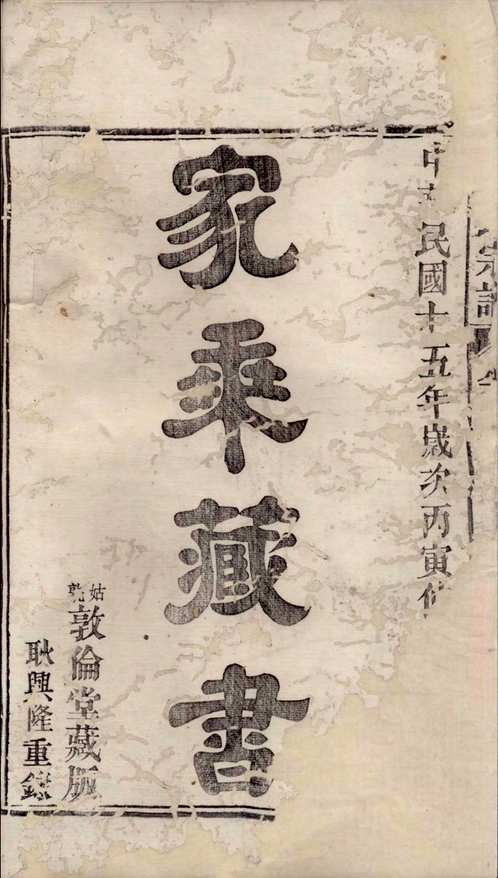 宗譜
中華民國十五年歲次丙寅
家乘藏書
姑孰敦倫堂藏版
耿興隆重鐫